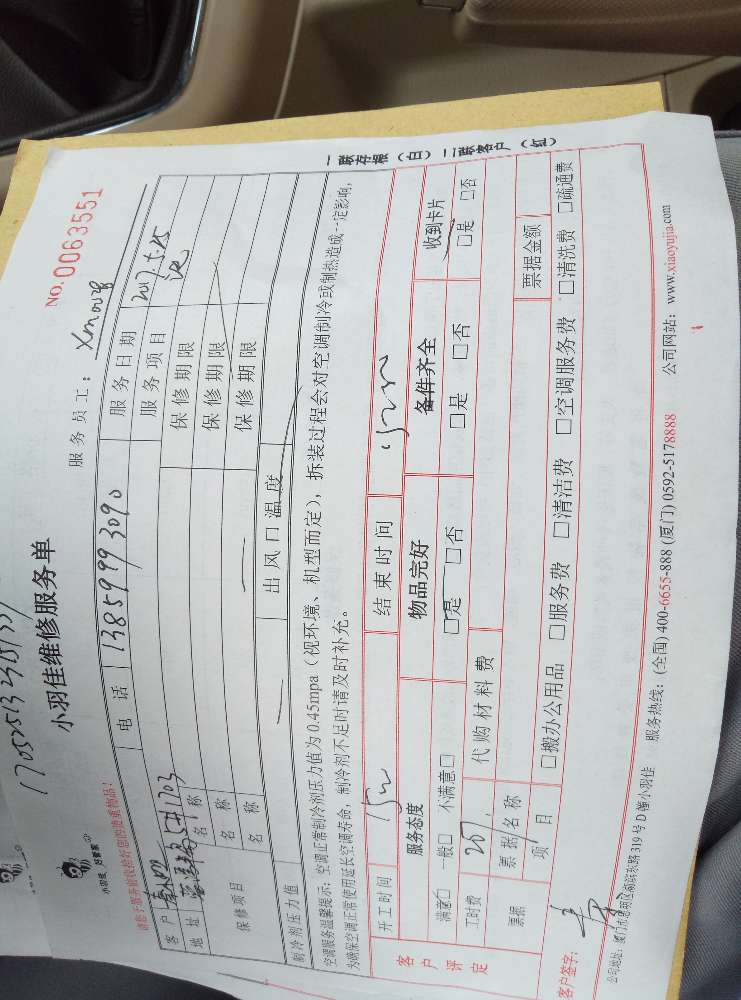 NO.0063551
小羽佳维修服务单
服务员工：
小羽佳 好管家
请您千万亲自收拾好您的贵重物品！
客户 电话 13859993090 服务日期 2017.5.25
地址 5#1703 服务项目
保修项目 名称 保修期限
名称 保修期限
名称 保修期限
制冷剂压力值 出风口温度
空调服务温馨提示：空调正常制冷剂压力值为0.45mpa（视环境、机型而定），拆装过程会对空调制冷或制热造成一定影响，
为确保空调正常使用延长空调寿命，制冷剂不足时请及时补充。
开工时间 结束时间
客户评定 服务态度 物品完好 备件齐全 收到卡片
满意□ 一般□ 不满意□ □是 □否 □是 □否 □是 □否
工时费 代购材料费
票据 票据名称 票据金额
项目 □搬办公用品 □服务费 □清洁费 □空调服务费 □清洗费 □疏通费
客户签字：
公司地址：厦门市思明区湖滨东路319号D幢小羽佳 服务热线：(全国) 400-6655-888 (厦门) 0592-5178888 公司网站：www.xiaoyujia.com
一联存根（白）二联客户（红）